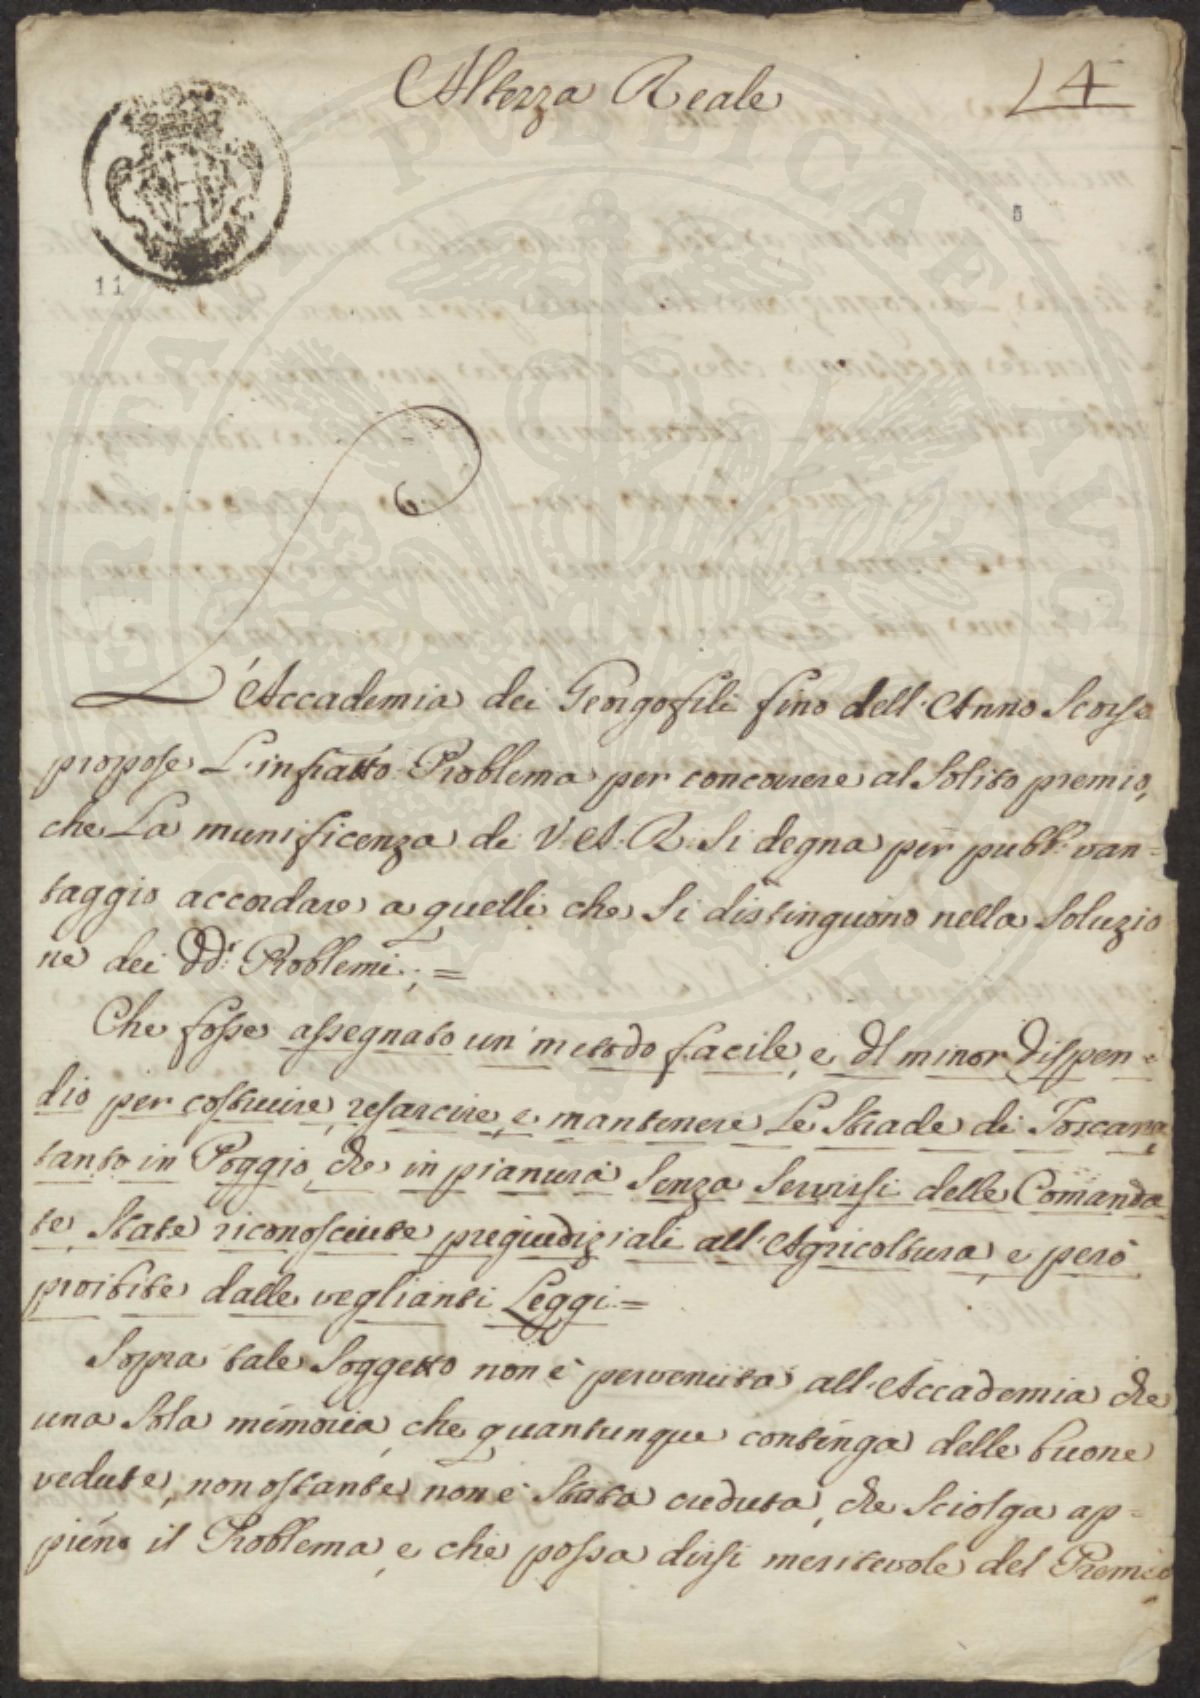 Altezza Reale
4
5
11
L'Accademia dei Georgofili fino dell'Anno Scorso
propose L'infratto Problema per concorrere al Solito premio,
che La munificenza di V. A. R. Si degna per pubb. van=
taggio accordare a quelli che Si distinguono nella Soluzio
ne dei dd. Problemi; =
Che fosse assegnato un' metodo facile, e di minor dispen=
dio per costruire, resarcire, e mantenere Le Strade di Toscana
tanto in Poggio, che in pianura Senza Servirsi delle Comanda
te, State riconosciute pregiudiziali all'Agricoltura, e però
proibite dalle veglianti Leggi =
Sopra tale Soggetto non è pervenuta all'Accademia che
una Sola memoria, che quantunque contenga delle buone
vedute, non ostante non è Stata creduta, che Sciolga ap=
pieno il Problema, e che possa dirsi meritevole del Premio
PERITAT PUBLICAE AUG